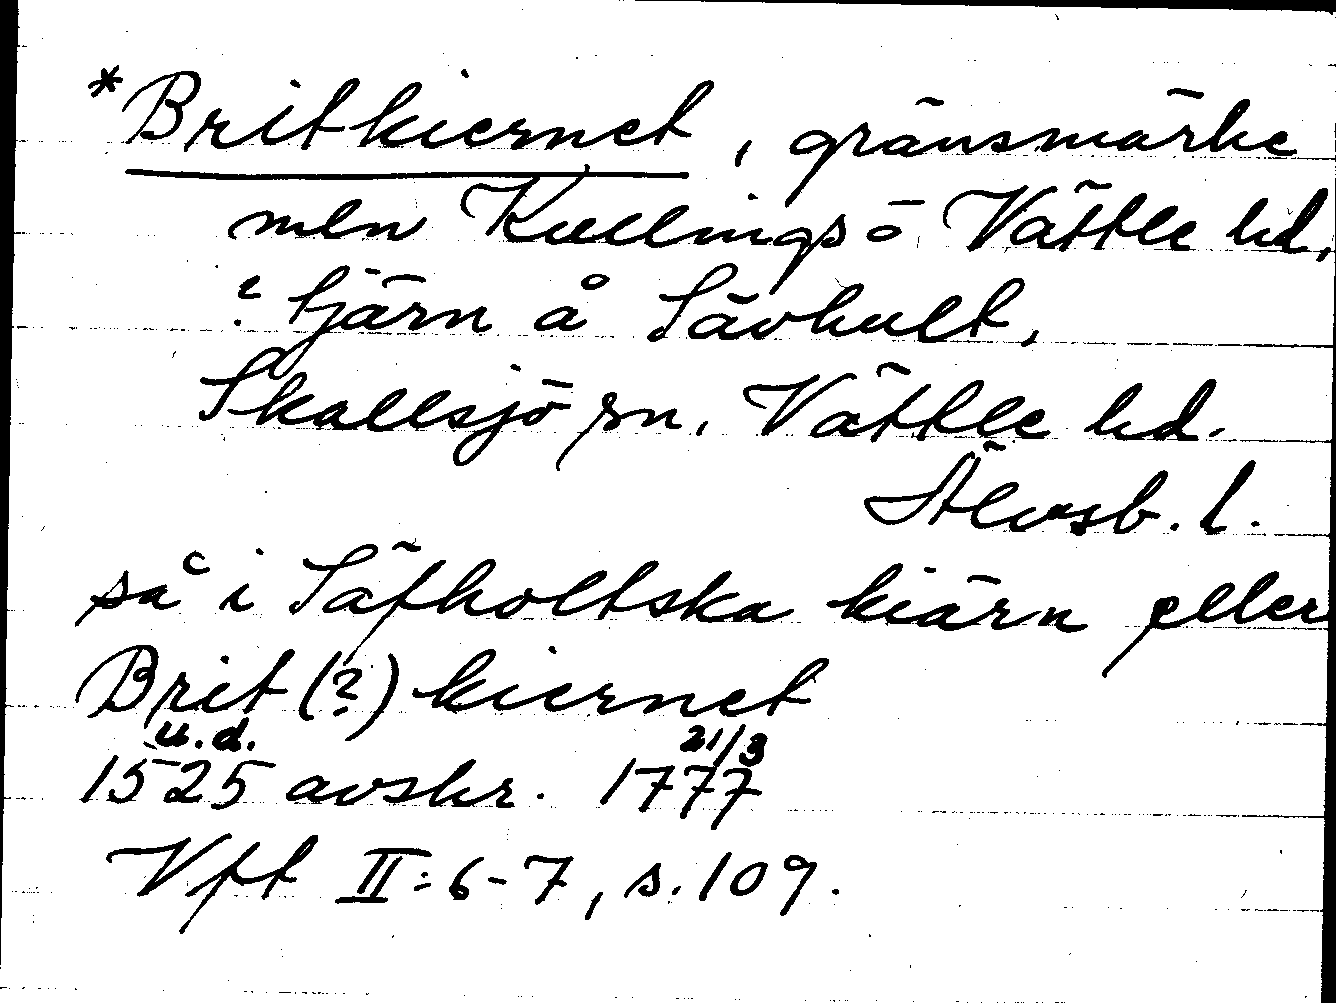 *Britkiernet, gränsmärke
mln Kullings o Vättle hd,
? tjärn å Sävhult,
Skallsjö sn, Vättle hd.
Älvsb. l.
så i Säfholtska kiärn eller
Brit(?)kiernet
u.d. 21/3
1525 avskr. 1777
Vft II:6-7, s. 109.